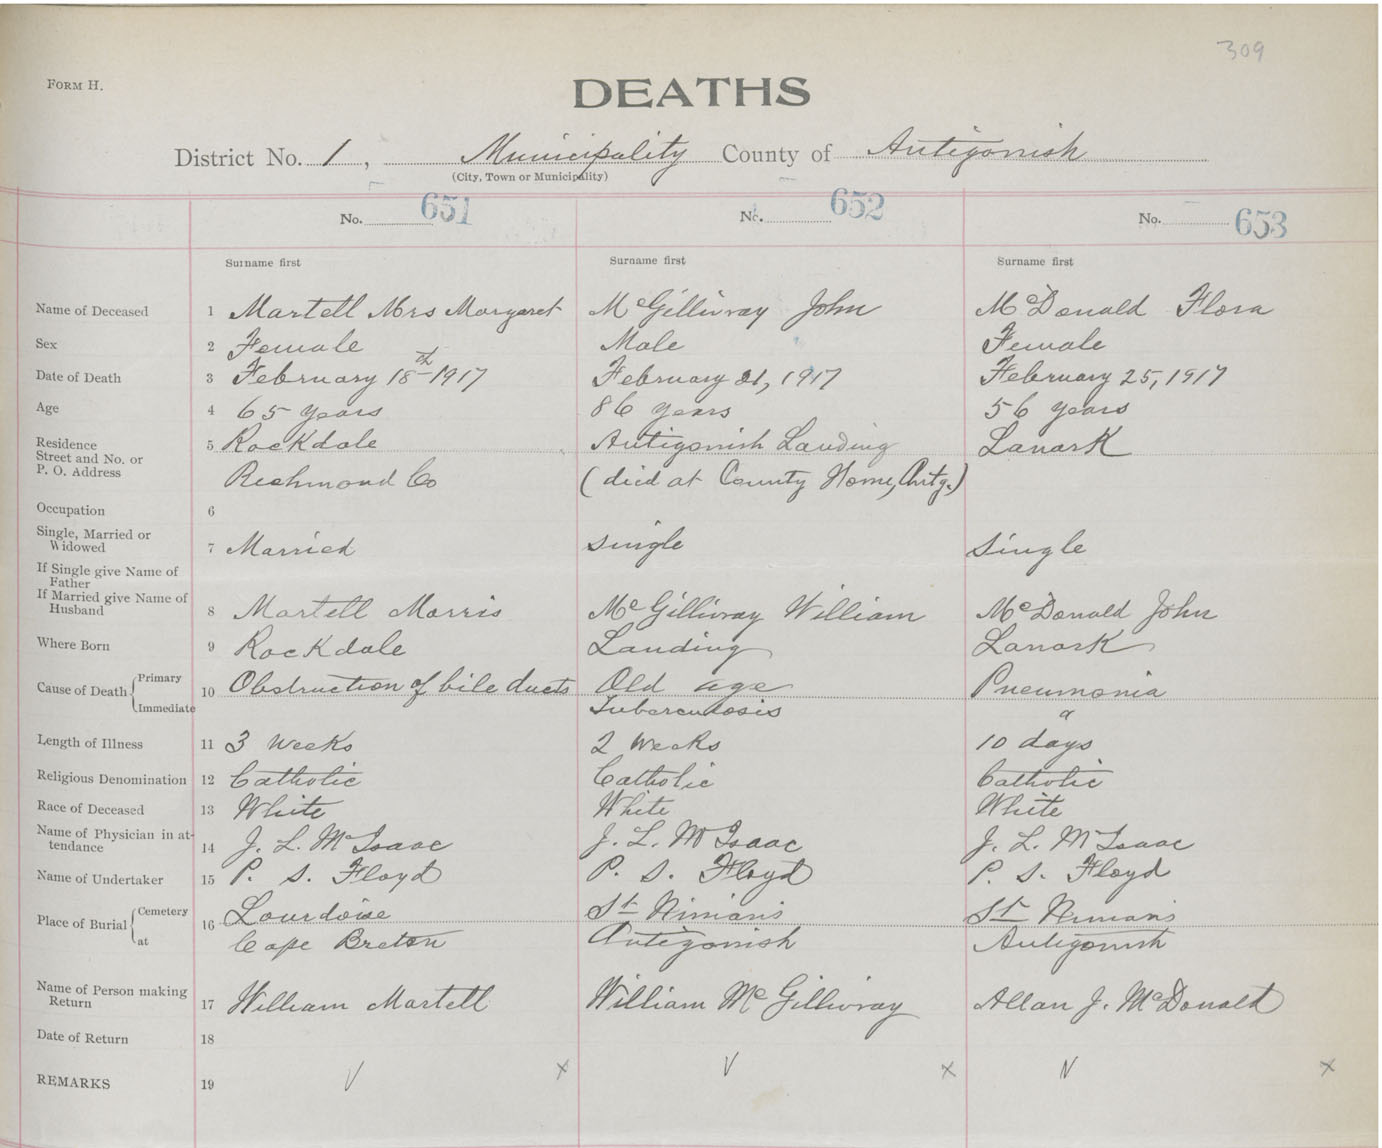 309
FORM H.
DEATHS
District No. 1, Municipality County of Antigonish
(City, Town or Municipality)
No. 651 No. 652 No. 653
Surname first Surname first Surname first
Name of Deceased 1 Martell Mrs Margaret McGillivray John McDonald Flora
Sex 2 Female Male Female
Date of Death 3 February 18th 1917 February 21, 1917 February 25, 1917
Age 4 65 years 86 years 56 years
Residence 5 Rockdale Antigonish Landing Lanark
Street and No. or
P. O. Address Richmond Co (died at County Home, Antg.)
Occupation 6
Single, Married or
Widowed 7 Married single Single
If Single give Name of
Father
If Married give Name of
Husband 8 Martell Morris McGillivray William McDonald John
Where Born 9 Rockdale Landing Lanark
Cause of Death Primary 10 Obstruction of bile ducts Old age Pneumonia
Immediate Tuberculosis a
Length of Illness 11 3 weeks 2 weeks 10 days
Religious Denomination 12 Catholic Catholic Catholic
Race of Deceased 13 White White White
Name of Physician in at-
tendance 14 J. L. McIsaac J. L. McIsaac J. L. McIsaac
Name of Undertaker 15 P. S. Floyd P. S. Floyd P. S. Floyd
Place of Burial Cemetery 16 Lourdoise St Ninians St Ninians
at Cape Breton Antigonish Antigonish
Name of Person making
Return 17 William Martell William McGillivray Allan J. McDonald
Date of Return 18
REMARKS 19